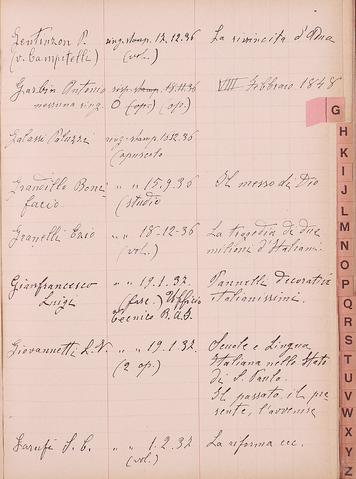 Gentizon P. ring. stamp. 12.12.36 La rivincita d'Adua
(v. Campitelli) (vol.)
Garbin Antonio risp. stamp. 18.11.36 VIII Febbraio 1848
nessuna ring. O (op.) (op.)
G
Galassi Paluzzi ring. stamp. 15.12.36
(opuscolo
Grandillo Boni " " 15.9.36 Il messo di Dio
facio (studio
Granelli Ezio " " 18-12-36 La tragedia di due
(vol.) milioni d'Italiani.
Gianfrancesco " " 19.1.37 Pannelli decorativi
Luigi (fasc.) Ufficio italianissimi.
tecnico B.A.G.
Giovannetti L.V. " " 19.1.37 Scuole e Lingua
(2 op.) Italiana nello Stato
di S. Paulo.
Il passato, il pre
sente, l'avvenire
Garufi S. C. " " 1.2.37 La riforma ecc.
(vol.)
H
I
J
K
L
M
N
O
P
Q
R
S
T
U
V
W
X
Y
Z